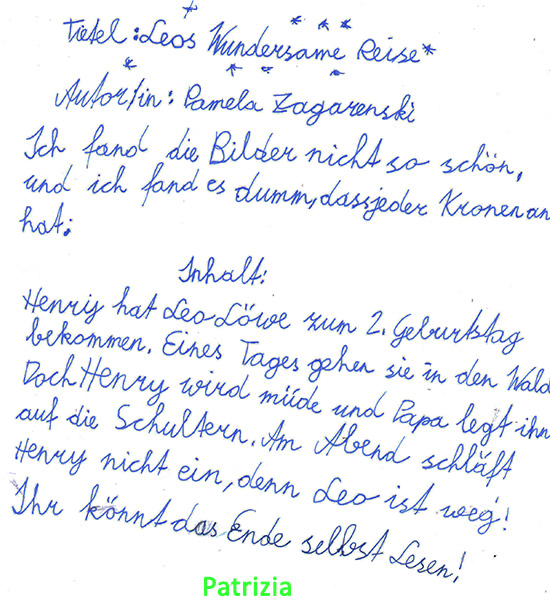 Titel: Leos Wundersame Reise*
Autor/in: Pamela Zagarenski
Ich fand die Bilder nicht so schön,
und ich fand es dumm, dass jeder Kronen an
hat.
Inhalt:
Henry hat Leo Löwe zum 2. Geburtstag
bekommen. Eines Tages gehen sie in den Wald
Doch Henry wird müde und Papa legt ihn
auf die Schultern. Am Abend schläft
Henry nicht ein, denn Leo ist weg!
Ihr könnt das Ende selbst Lesen!
Patrizia